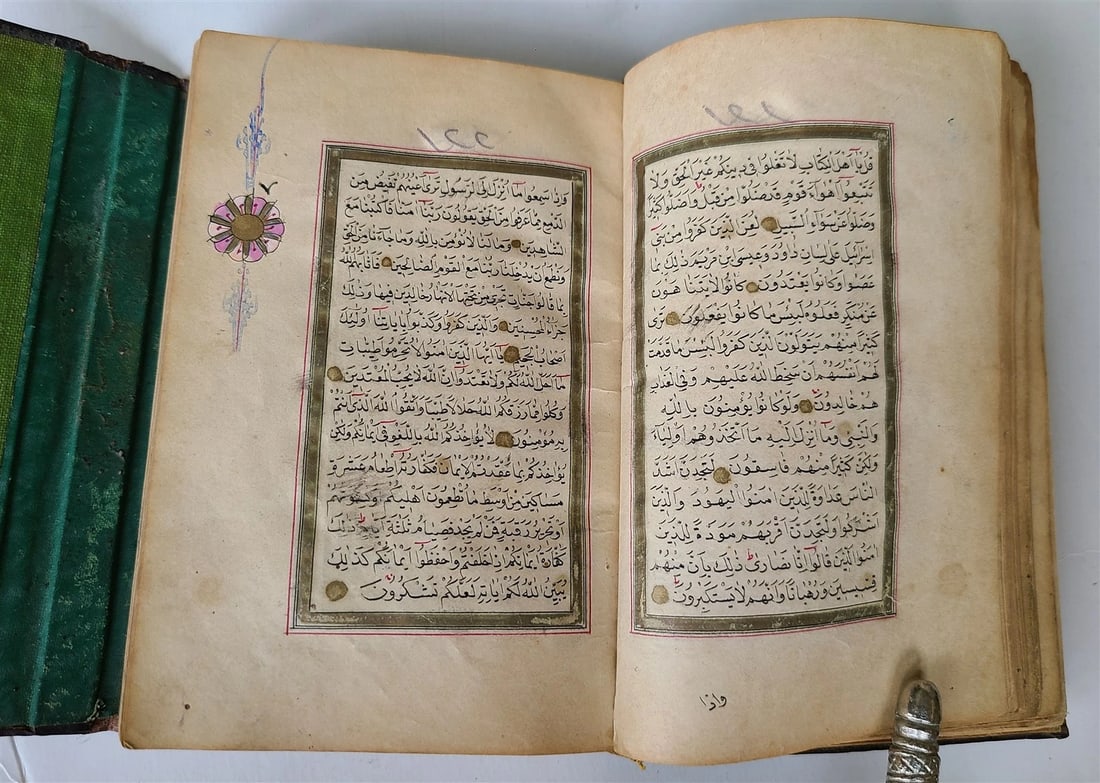 قل يا اهل الكتاب لا تغلوا في دينكم غير الحق ولا
تتبعوا اهواء قوم قد ضلوا من قبل واضلوا كثيرا
وضلوا عن سواء السبيل لعن الذين كفروا من بني
اسرائيل على لسان داود وعيسى ابن مريم ذلك بما
عصوا وكانوا يعتدون كانوا لا يتناهون
عن منكر فعلوه لبئس ما كانوا يفعلون ترى
كثيرا منهم يتولون الذين كفروا لبئس ما قدمت
لهم انفسهم ان سخط الله عليهم وفي العذاب
هم خالدون ولو كانوا يؤمنون بالله
والنبي وما انزل اليه ما اتخذوهم اولياء
ولكن كثيرا منهم فاسقون لتجدن اشد
الناس عداوة للذين امنوا اليهود والذين
اشركوا ولتجدن اقربهم مودة للذين
امنوا الذين قالوا انا نصارى ذلك بان منهم
قسيسين ورهبانا وانهم لا يستكبرون
واذا
٧
واذا سمعوا ما انزل الى الرسول ترى اعينهم تفيض من
الدمع مما عرفوا من الحق يقولون ربنا امنا فاكتبنا مع
الشاهدين وما لنا لا نؤمن بالله وما جاءنا من الحق
ونطمع ان يدخلنا ربنا مع القوم الصالحين فاثابهم الله
بما قالوا جنات تجري من تحتها الانهار خالدين فيها وذلك
جزاء المحسنين والذين كفروا وكذبوا باياتنا اولئك
اصحاب الجحيم يا ايها الذين امنوا لا تحرموا طيبات
ما احل الله لكم ولا تعتدوا ان الله لا يحب المعتدين
وكلوا مما رزقكم الله حلالا طيبا واتقوا الله الذي انتم
به مؤمنون لا يؤاخذكم الله باللغو في ايمانكم ولكن
يؤاخذكم بما عقدتم الايمان فكفارته اطعام عشرة
مساكين من اوسط ما تطعمون اهليكم او كسوتهم
او تحرير رقبة فمن لم يجد فصيام ثلثة ايام ذلك
كفارة ايمانكم اذا حلفتم واحفظوا ايمانكم كذلك
يبين الله لكم اياته لعلكم تشكرون